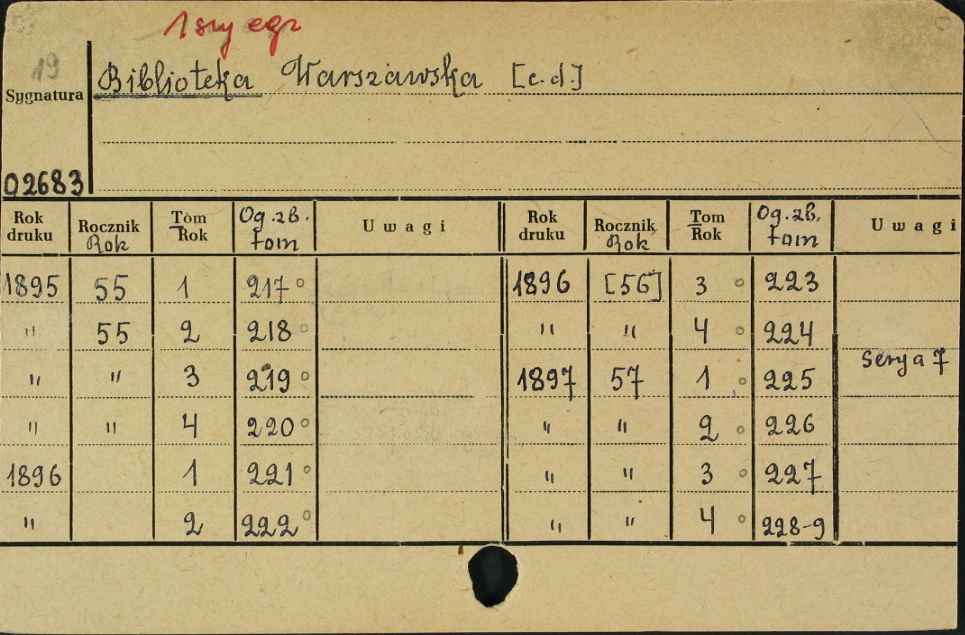 1szy egz
19
Biblioteka Warszawska [c.d.]
Sygnatura
02683
Rok druku Rocznik Rok Tom Rok Og. zb. tom Uwagi Rok druku Rocznik Rok Tom Rok Og. zb. tom Uwagi
1895 55 1 217° 1896 [56] 3 ° 223
" 55 2 218° " " 4 ° 224
" " 3 219° 1897 57 1 ° 225 Serya 7
" " 4 220° " " 2 ° 226
1896 1 221° " " 3 ° 227
" 2 222° " " 4 ° 228-9